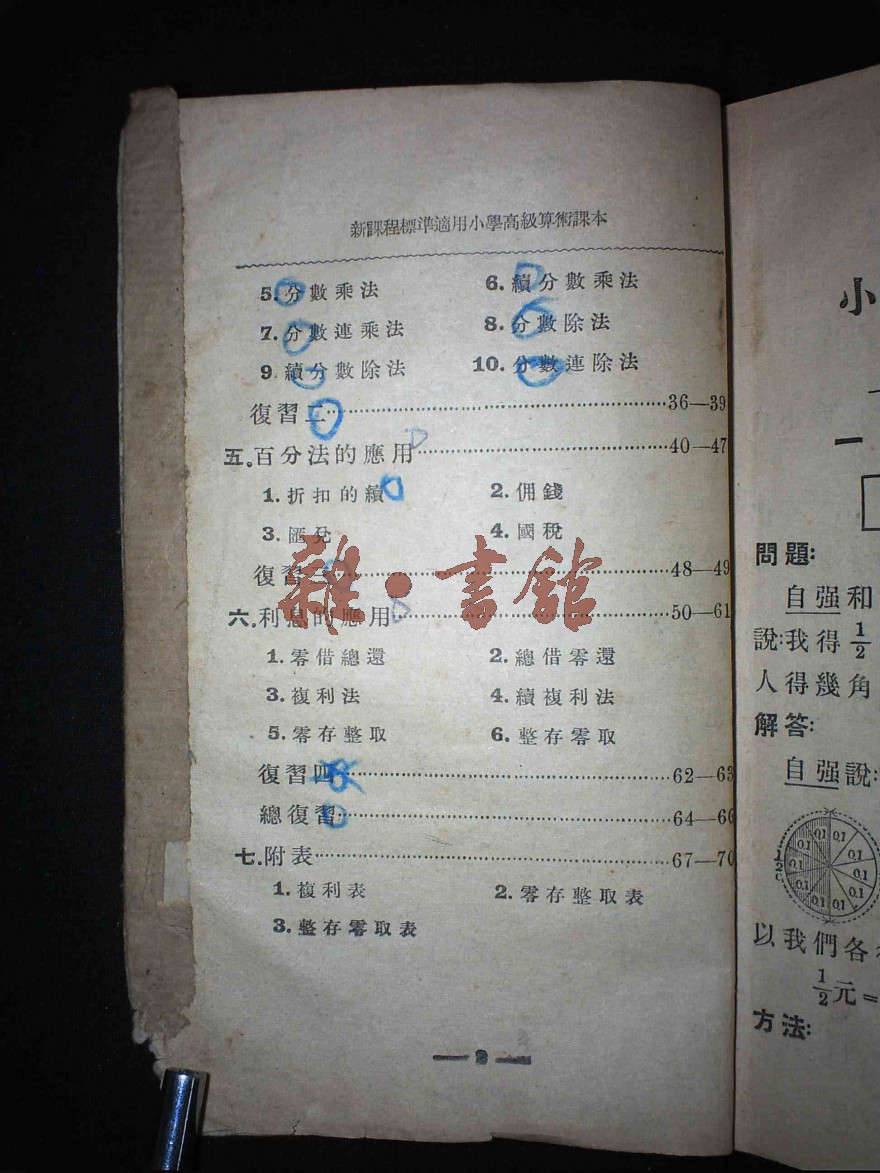 新課程標準適用小學高級算術課本
5. 分數乘法 6. 續分數乘法
7. 分數連乘法 8. 分數除法
9. 續分數除法 10. 分數連除法
復習二……36—39
五. 百分法的應用……40—47
1. 折扣的續 2. 佣錢
3. 匯兌 4. 國稅
復習三……48—49
六. 利息的應用……50—61
1. 零借總還 2. 總借零還
3. 複利法 4. 續複利法
5. 零存整取 6. 整存零取
復習四……62—63
總復習……64—66
七. 附表……67—70
1. 複利表 2. 零存整取表
3. 整存零取表
— 2 —
雜·書館
小
一
問題:
自强和
說:我得1/2
人得幾角
解答:
自强說:
0.1 0.1 0.1 0.1 0.1 0.1 0.1 0.1 0.1 0.1
以我們各
1/2元=
方法: